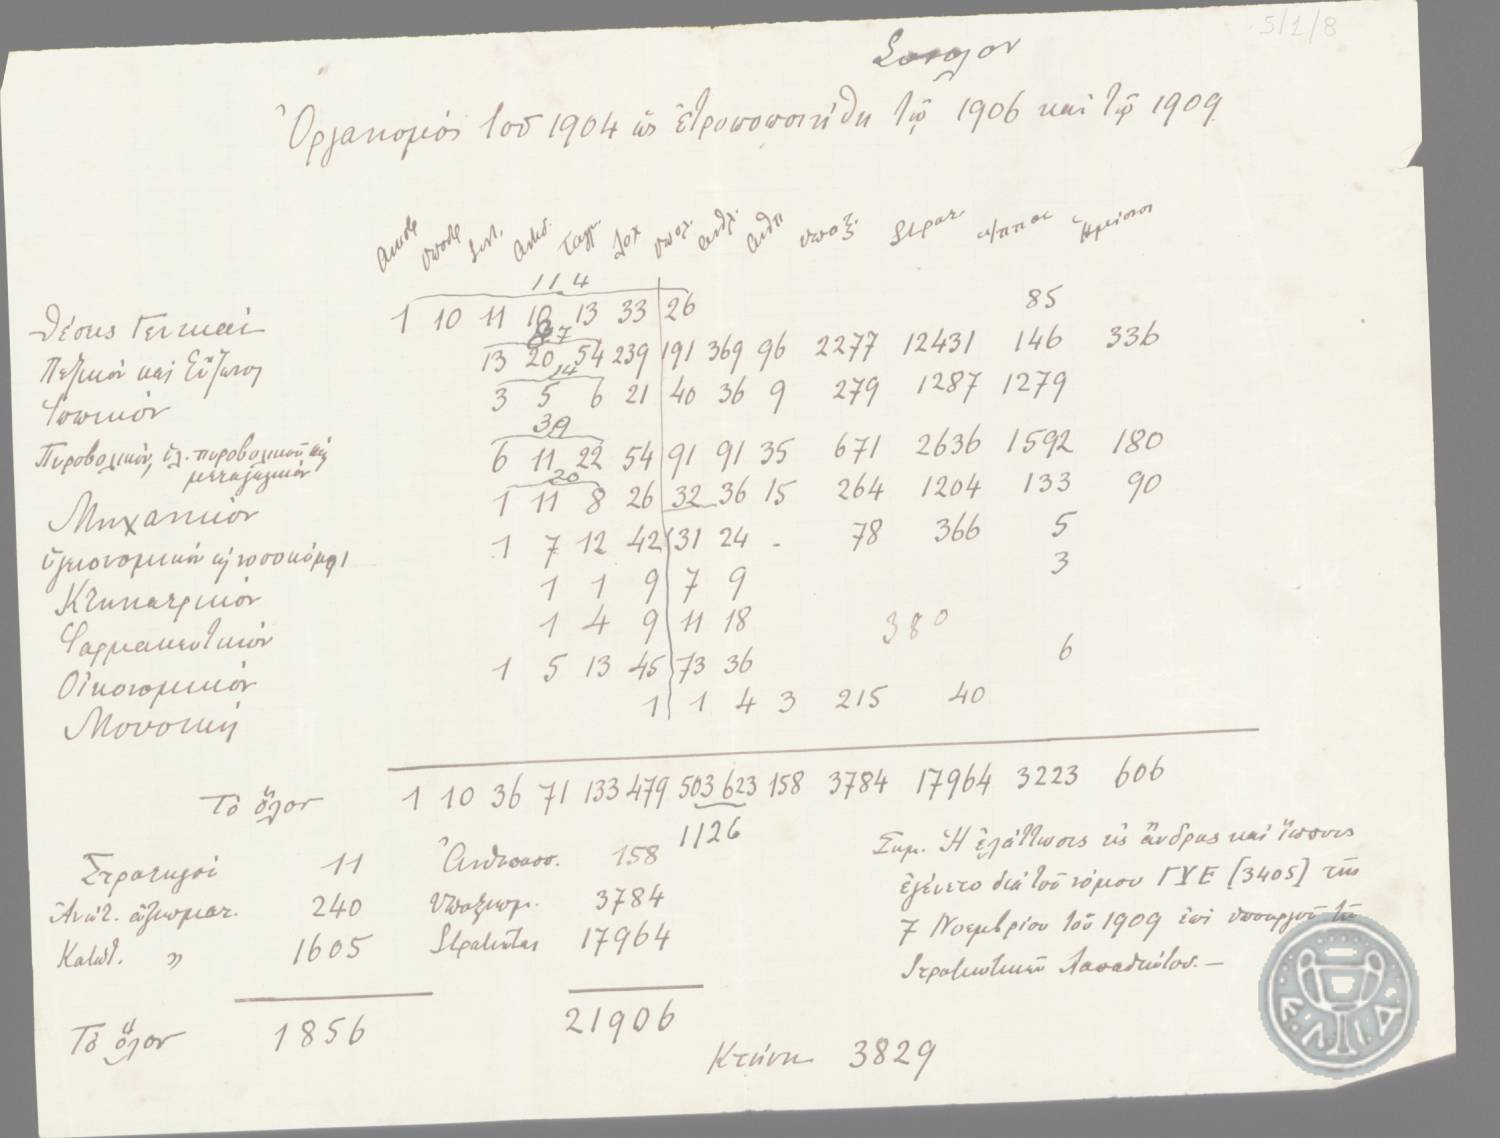 5/1/8
Σύνολον
Ὀργανισμός τοῦ 1904 ὡς ἐτροποποιήθη τῷ 1906 καὶ τῷ 1909
ἀντιστρ ὑποστρ συντ. ἀντισ. ταγμ. λοχ ὑπολ. ἀνθλ. ἀνθπ ὑπαξ. στρατ. ἵπποι ἡμίονοι
11.4
Θέσεις Γενικαί 1 10 11 10 13 33 26 85
87
Πεζικόν καὶ Εὔζωνοι 13 20 54 239 191 369 96 2277 12431 146 336
14
Ἱππικόν 3 5 6 21 40 36 9 279 1287 1279
39
Πυροβολικόν, ὑλ. πυροβολικοῦ καὶ μεταγωγικόν 6 11 22 54 91 91 35 671 2636 1592 180
20
Μηχανικόν 1 11 8 26 32 36 15 264 1204 133 90
Ὑγειονομικόν καὶ νοσοκόμοι 1 7 12 42 31 24 - 78 366 5
Κτηνιατρικόν 1 1 9 7 9 3
Φαρμακευτικόν 1 4 9 11 18 380
Οἰκονομικόν 1 5 13 45 73 36 6
Μουσική 1 1 4 3 215 40
Τὸ ὅλον 1 10 36 71 133 479 503 623 158 3784 17964 3223 606
1126
Στρατηγοί 11 Ἀνθυπασπ. 158
Ἀνώτ. ἀξιωματ. 240 Ὑπαξιωμ. 3784
Κατώτ. " 1605 Στρατιῶται 17964
Τὸ ὅλον 1856 21906
Κτήνη 3829
Σημ. Ἡ ἐλάττωσις εἰς ἄνδρας καὶ ἵππους
ἐγένετο διὰ τοῦ νόμου ΓΥΕ [3405] τῆς
7 Νοεμβρίου τοῦ 1909 ἐπὶ ὑπουργοῦ τῶν
Στρατιωτικῶν Λαπαθιώτου. —
Ε.Λ.Ι.Α